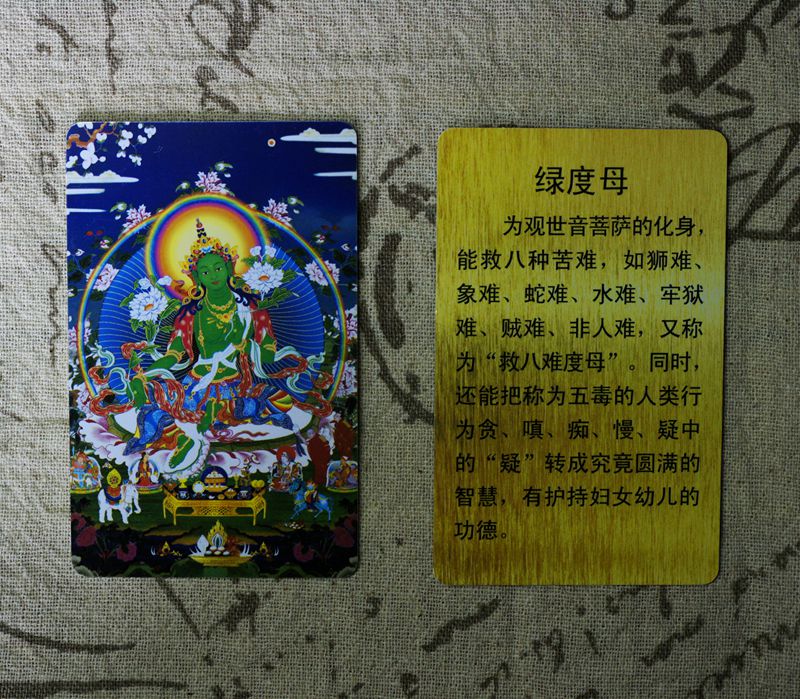 绿度母
为观世音菩萨的化身，
能救八种苦难，如狮难、
象难、蛇难、水难、牢狱
难、贼难、非人难，又称
为“救八难度母”。同时，
还能把称为五毒的人类行
为贪、嗔、痴、慢、疑中
的“疑”转成究竟圆满的
智慧，有护持妇女幼儿的
功德。